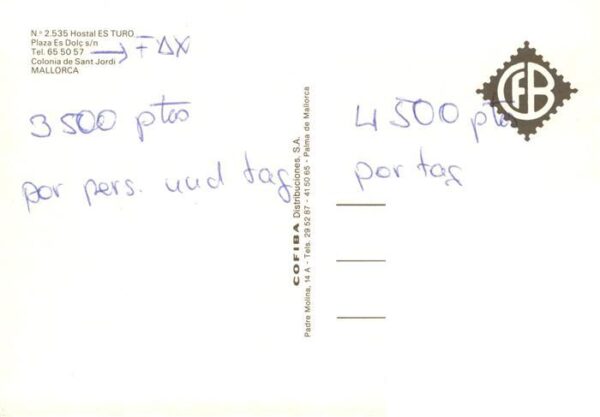 Nº 2.535 Hostal ES TURO
Plaza Es Dolç s/n
Tel. 65 50 57 → FAX
Colonia de Sant Jordi
MALLORCA
3 500 ptas
por pers. und tag
4 500 ptas
por tag
COFIBA Distribuciones, S.A.
Padre Molina, 14 A - Tels. 29 52 87 - 41 50 65 - Palma de Mallorca
CFB